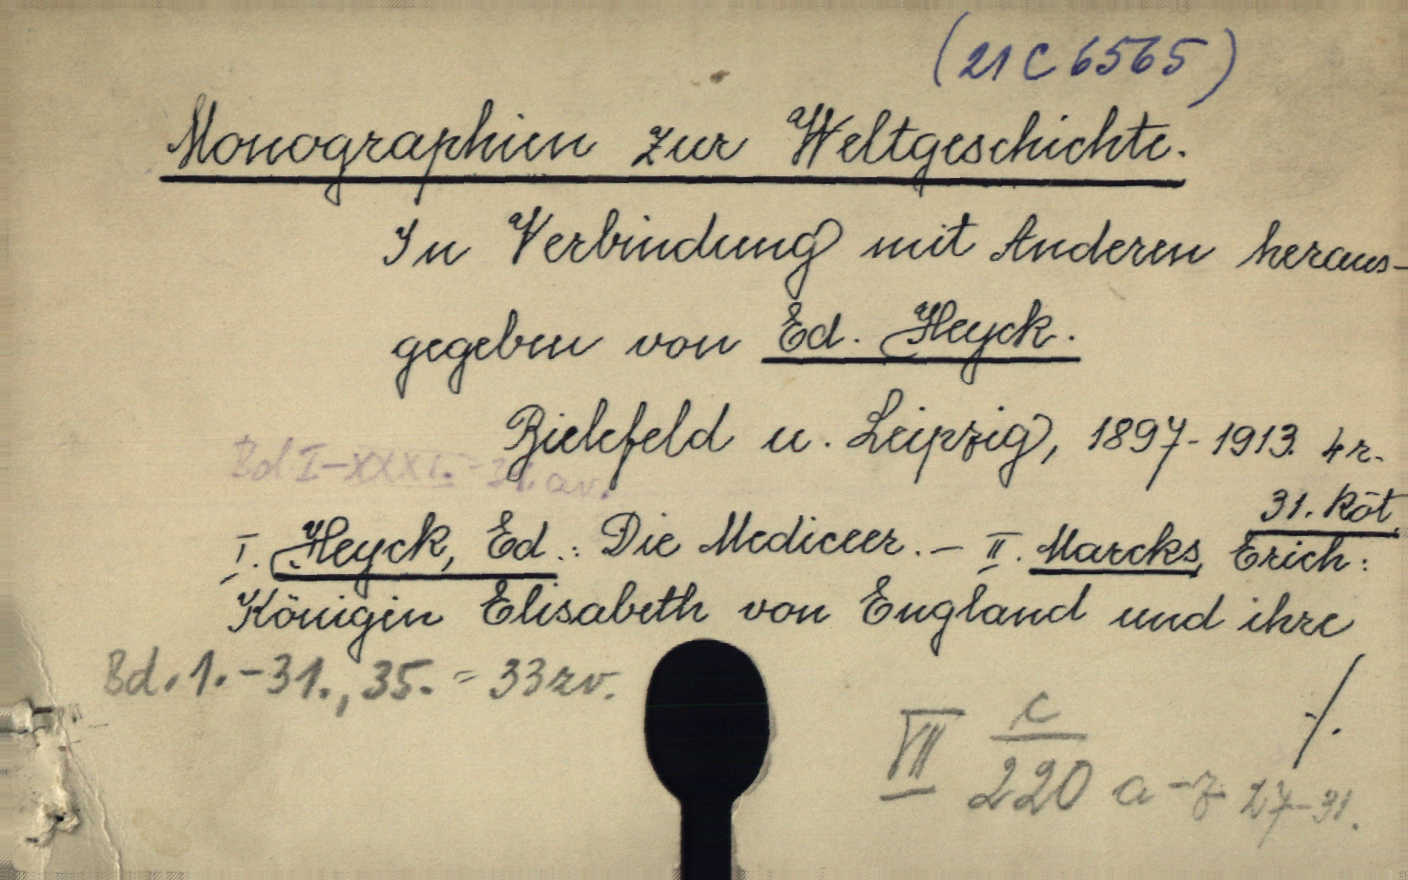 (21 C 6565)
Monographien zur Weltgeschichte.
In Verbindung mit Anderen heraus-
gegeben von Ed. Heyck.
Bielefeld u. Leipzig, 1897-1913. 4r.
Bd I-XXXI. = 31. av.
31. köt.
I. Heyck, Ed.: Die Mediceer. — II. Marcks, Erich:
Königin Elisabeth von England und ihre
Bd. 1.-31., 35. = 33 zv.
./.
VII c/220 a-z 27-31.